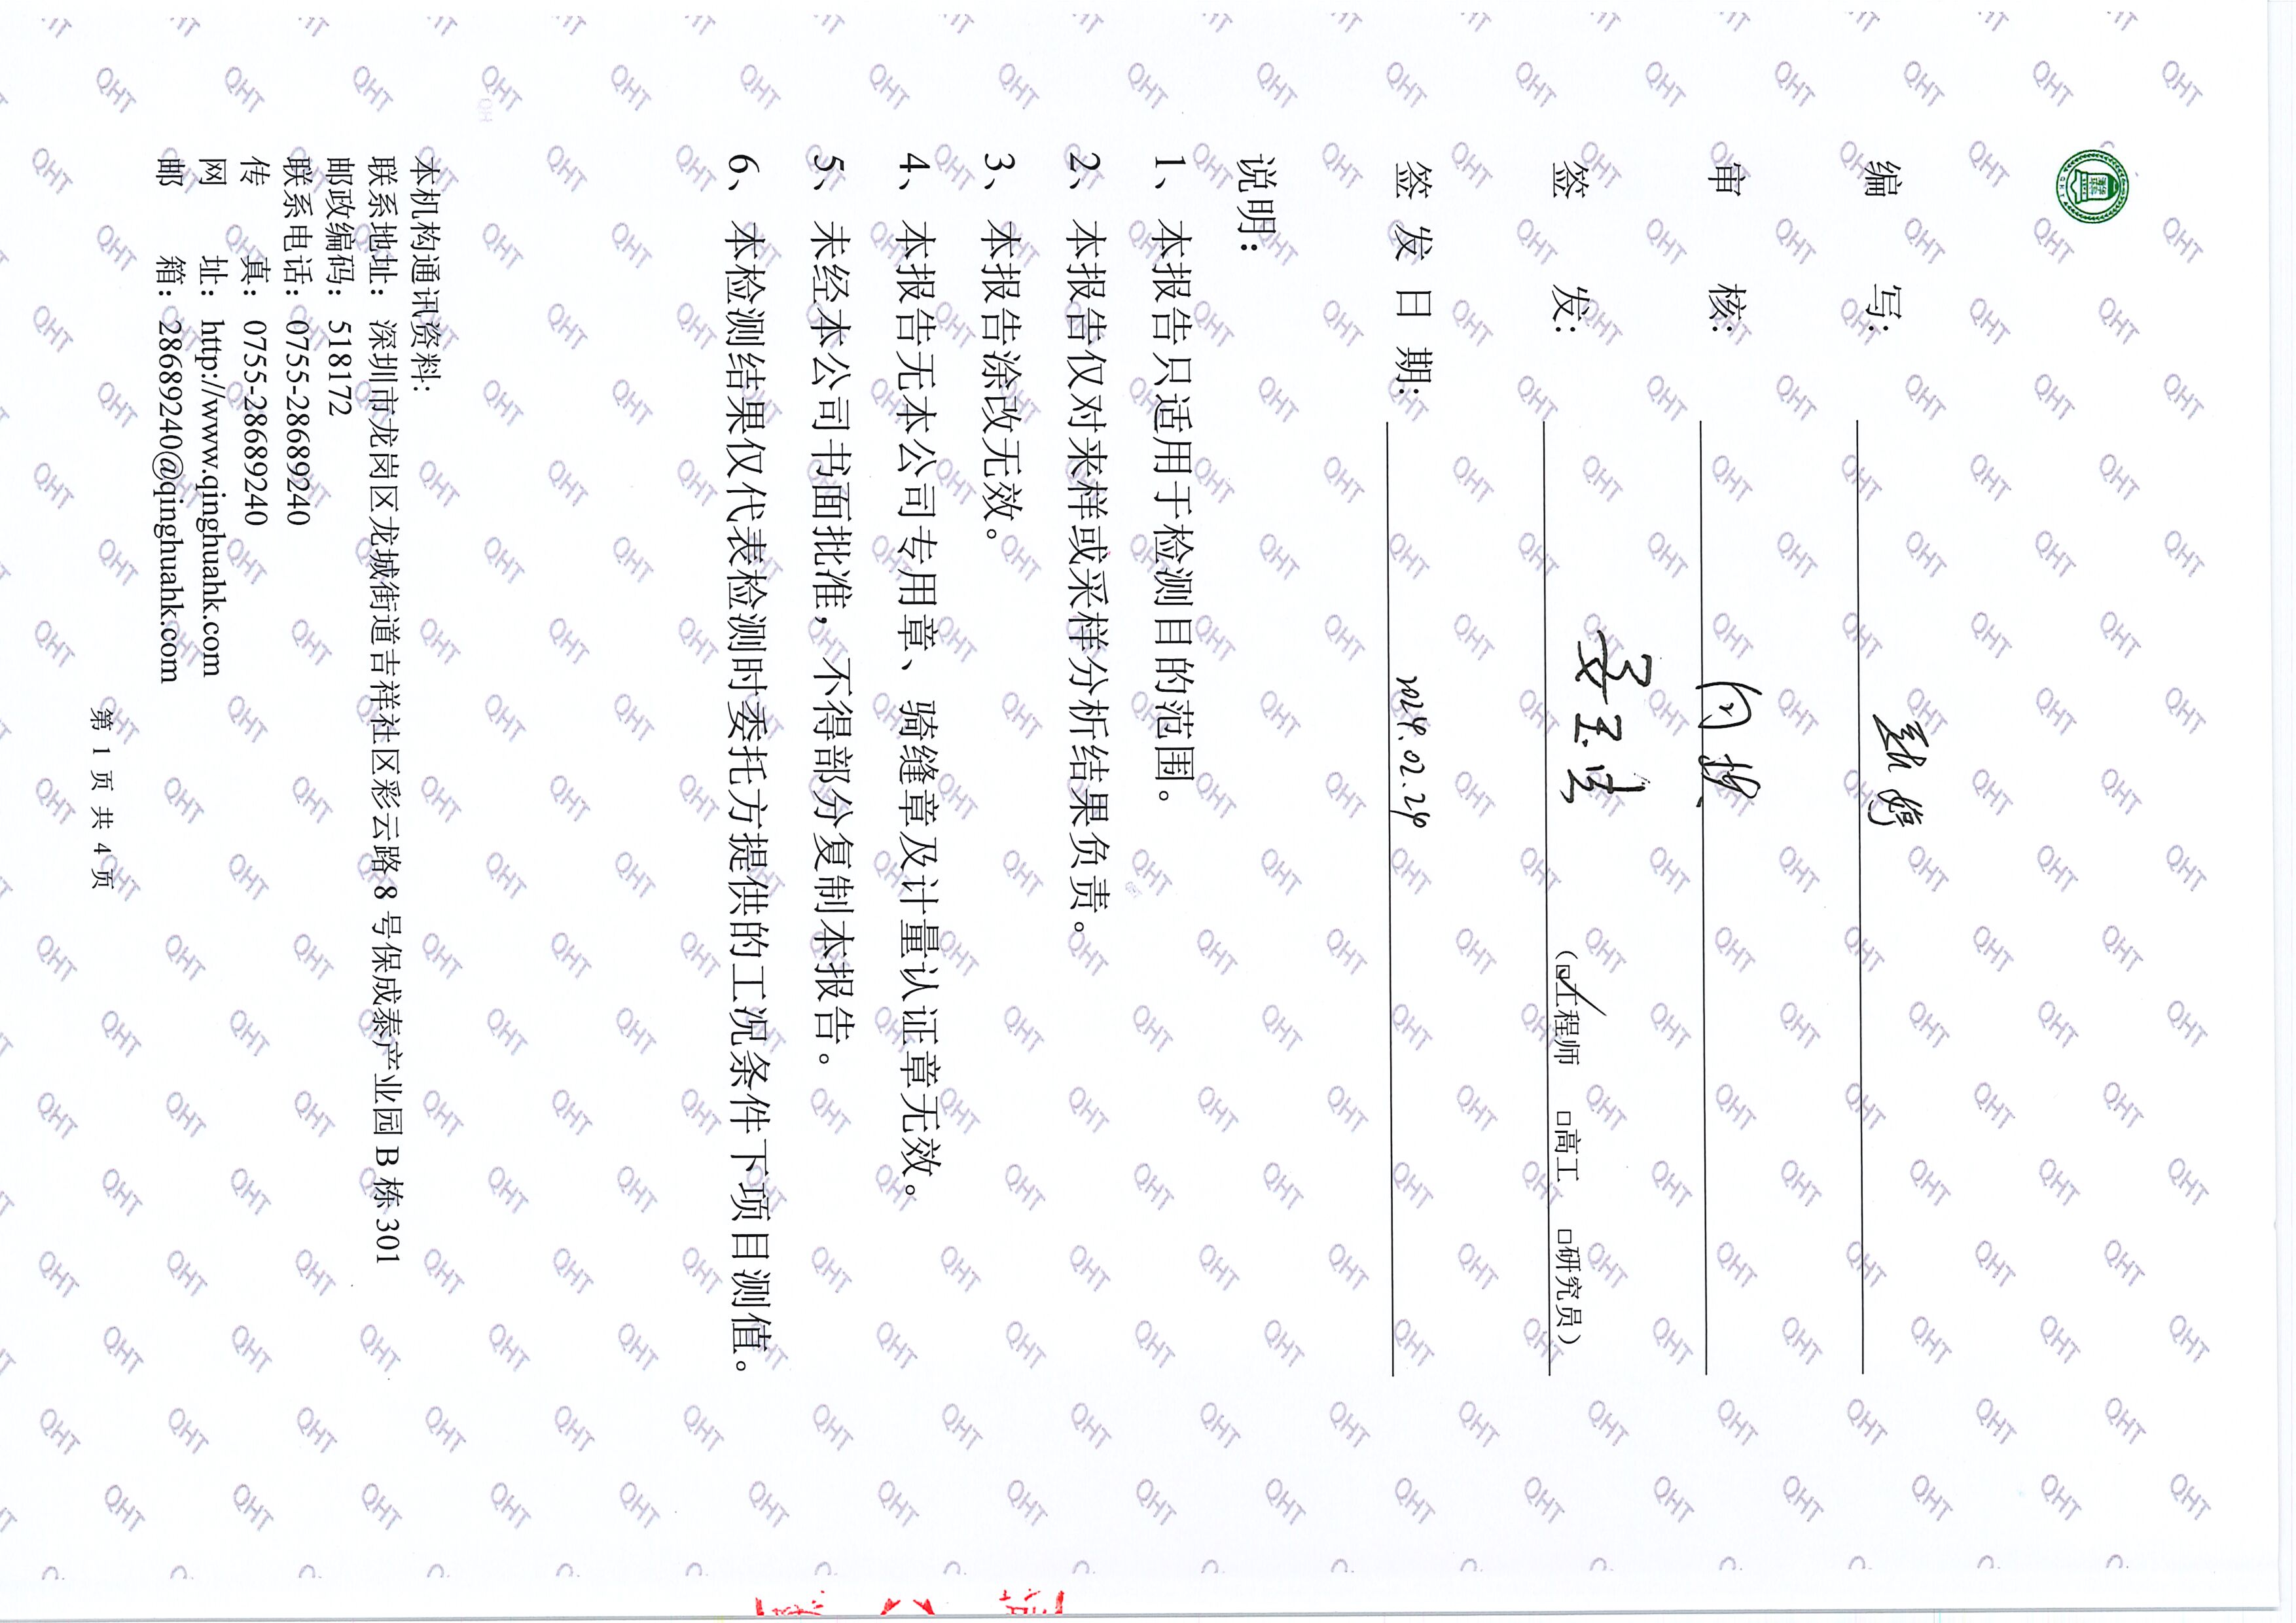 编 写:
审 核:
签 发: (☑工程师 □高工 □研究员)
签 发 日 期: 2024.02.24
说明:
1、 本报告只适用于检测目的范围。
2、 本报告仅对来样或采样分析结果负责。
3、 本报告涂改无效。
4、 本报告无本公司专用章、骑缝章及计量认证章无效。
5、 未经本公司书面批准，不得部分复制本报告。
6、 本检测结果仅代表检测时委托方提供的工况条件下项目测值。
本机构通讯资料:
联系地址: 深圳市龙岗区龙城街道吉祥社区彩云路 8 号保成泰产业园 B 栋 301
邮政编码: 518172
联系电话: 0755-28689240
传 真: 0755-28689240
网 址: http://www.qinghuahk.com
邮 箱: 28689240@qinghuahk.com
第 1 页 共 4 页